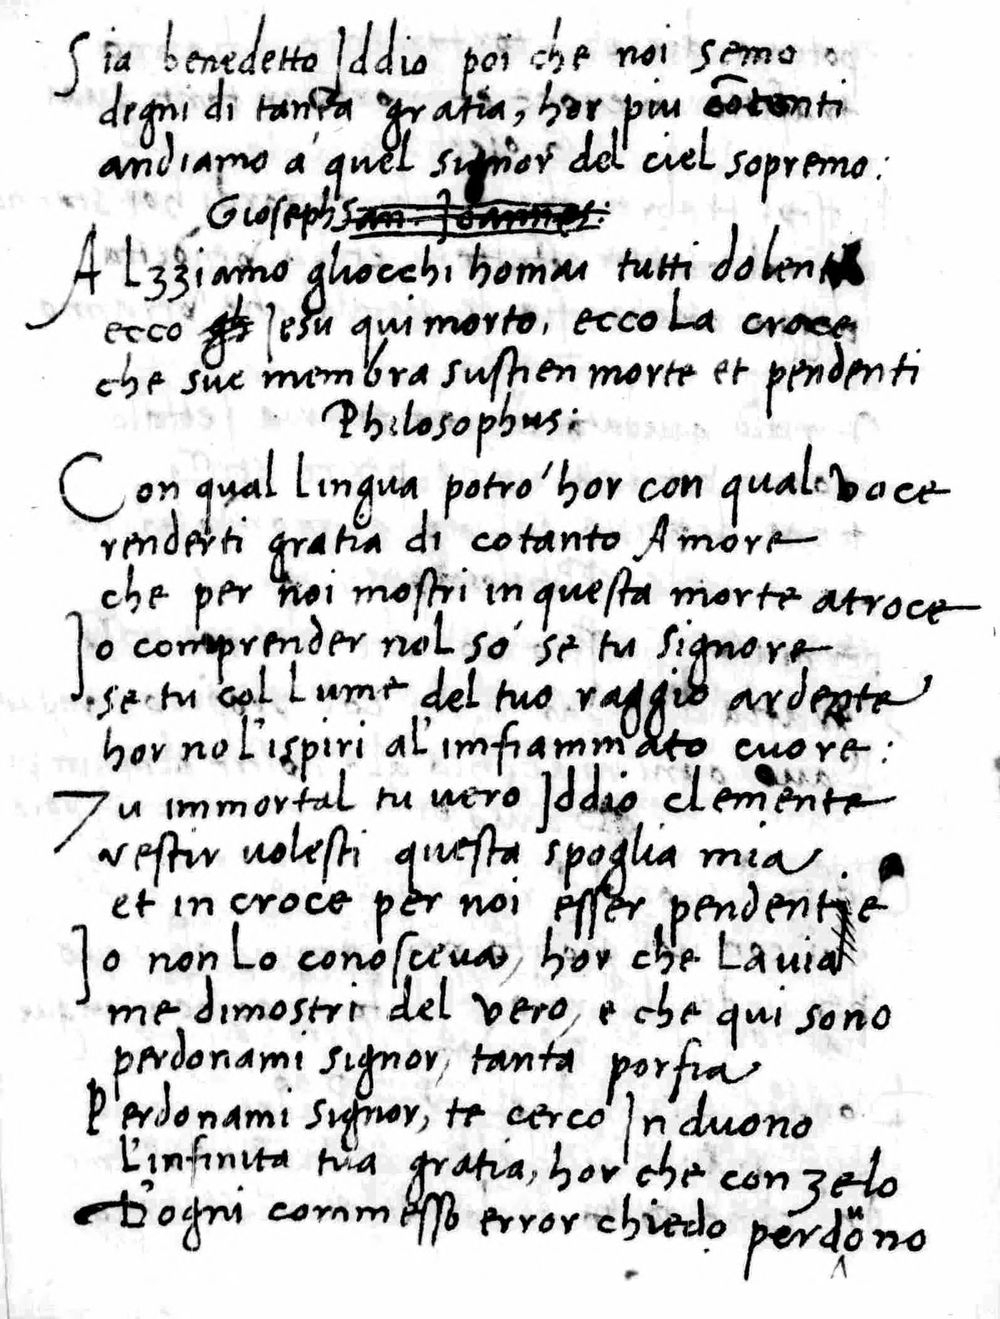 Sia benedetto Iddio poi che noi semo
degni di tanta gratia, hor piu cõtenti
andiamo a quel signor del ciel sopremo:
Gioseph San Joannes:
Alzziamo gliocchi homai tutti dolenti
ecco Jesu qui morto, ecco la croce
che sue membra sustien morte et pendenti
Philosophus:
Con qual lingua potro' hor con qual voce
renderti gratia di cotanto Amore
che per noi mostri in questa morte atroce
Io comprender nol so' se tu signore
se tu col lume del tuo raggio ardente
hor nol'ispiri al'imfiammato cuore:
Tu immortal tu vero Iddio clemente
vestir uolesti questa spoglia mia
et in croce per noi esser pendente
Io non lo conosceua, hor che la uia
me dimostri del vero, e che qui sono
perdonami signor, tanta porfia
Perdonami signor, te cerco In duono
l'infinita tua gratia, hor che con zelo
D'ogni commesso error chiedo perduono